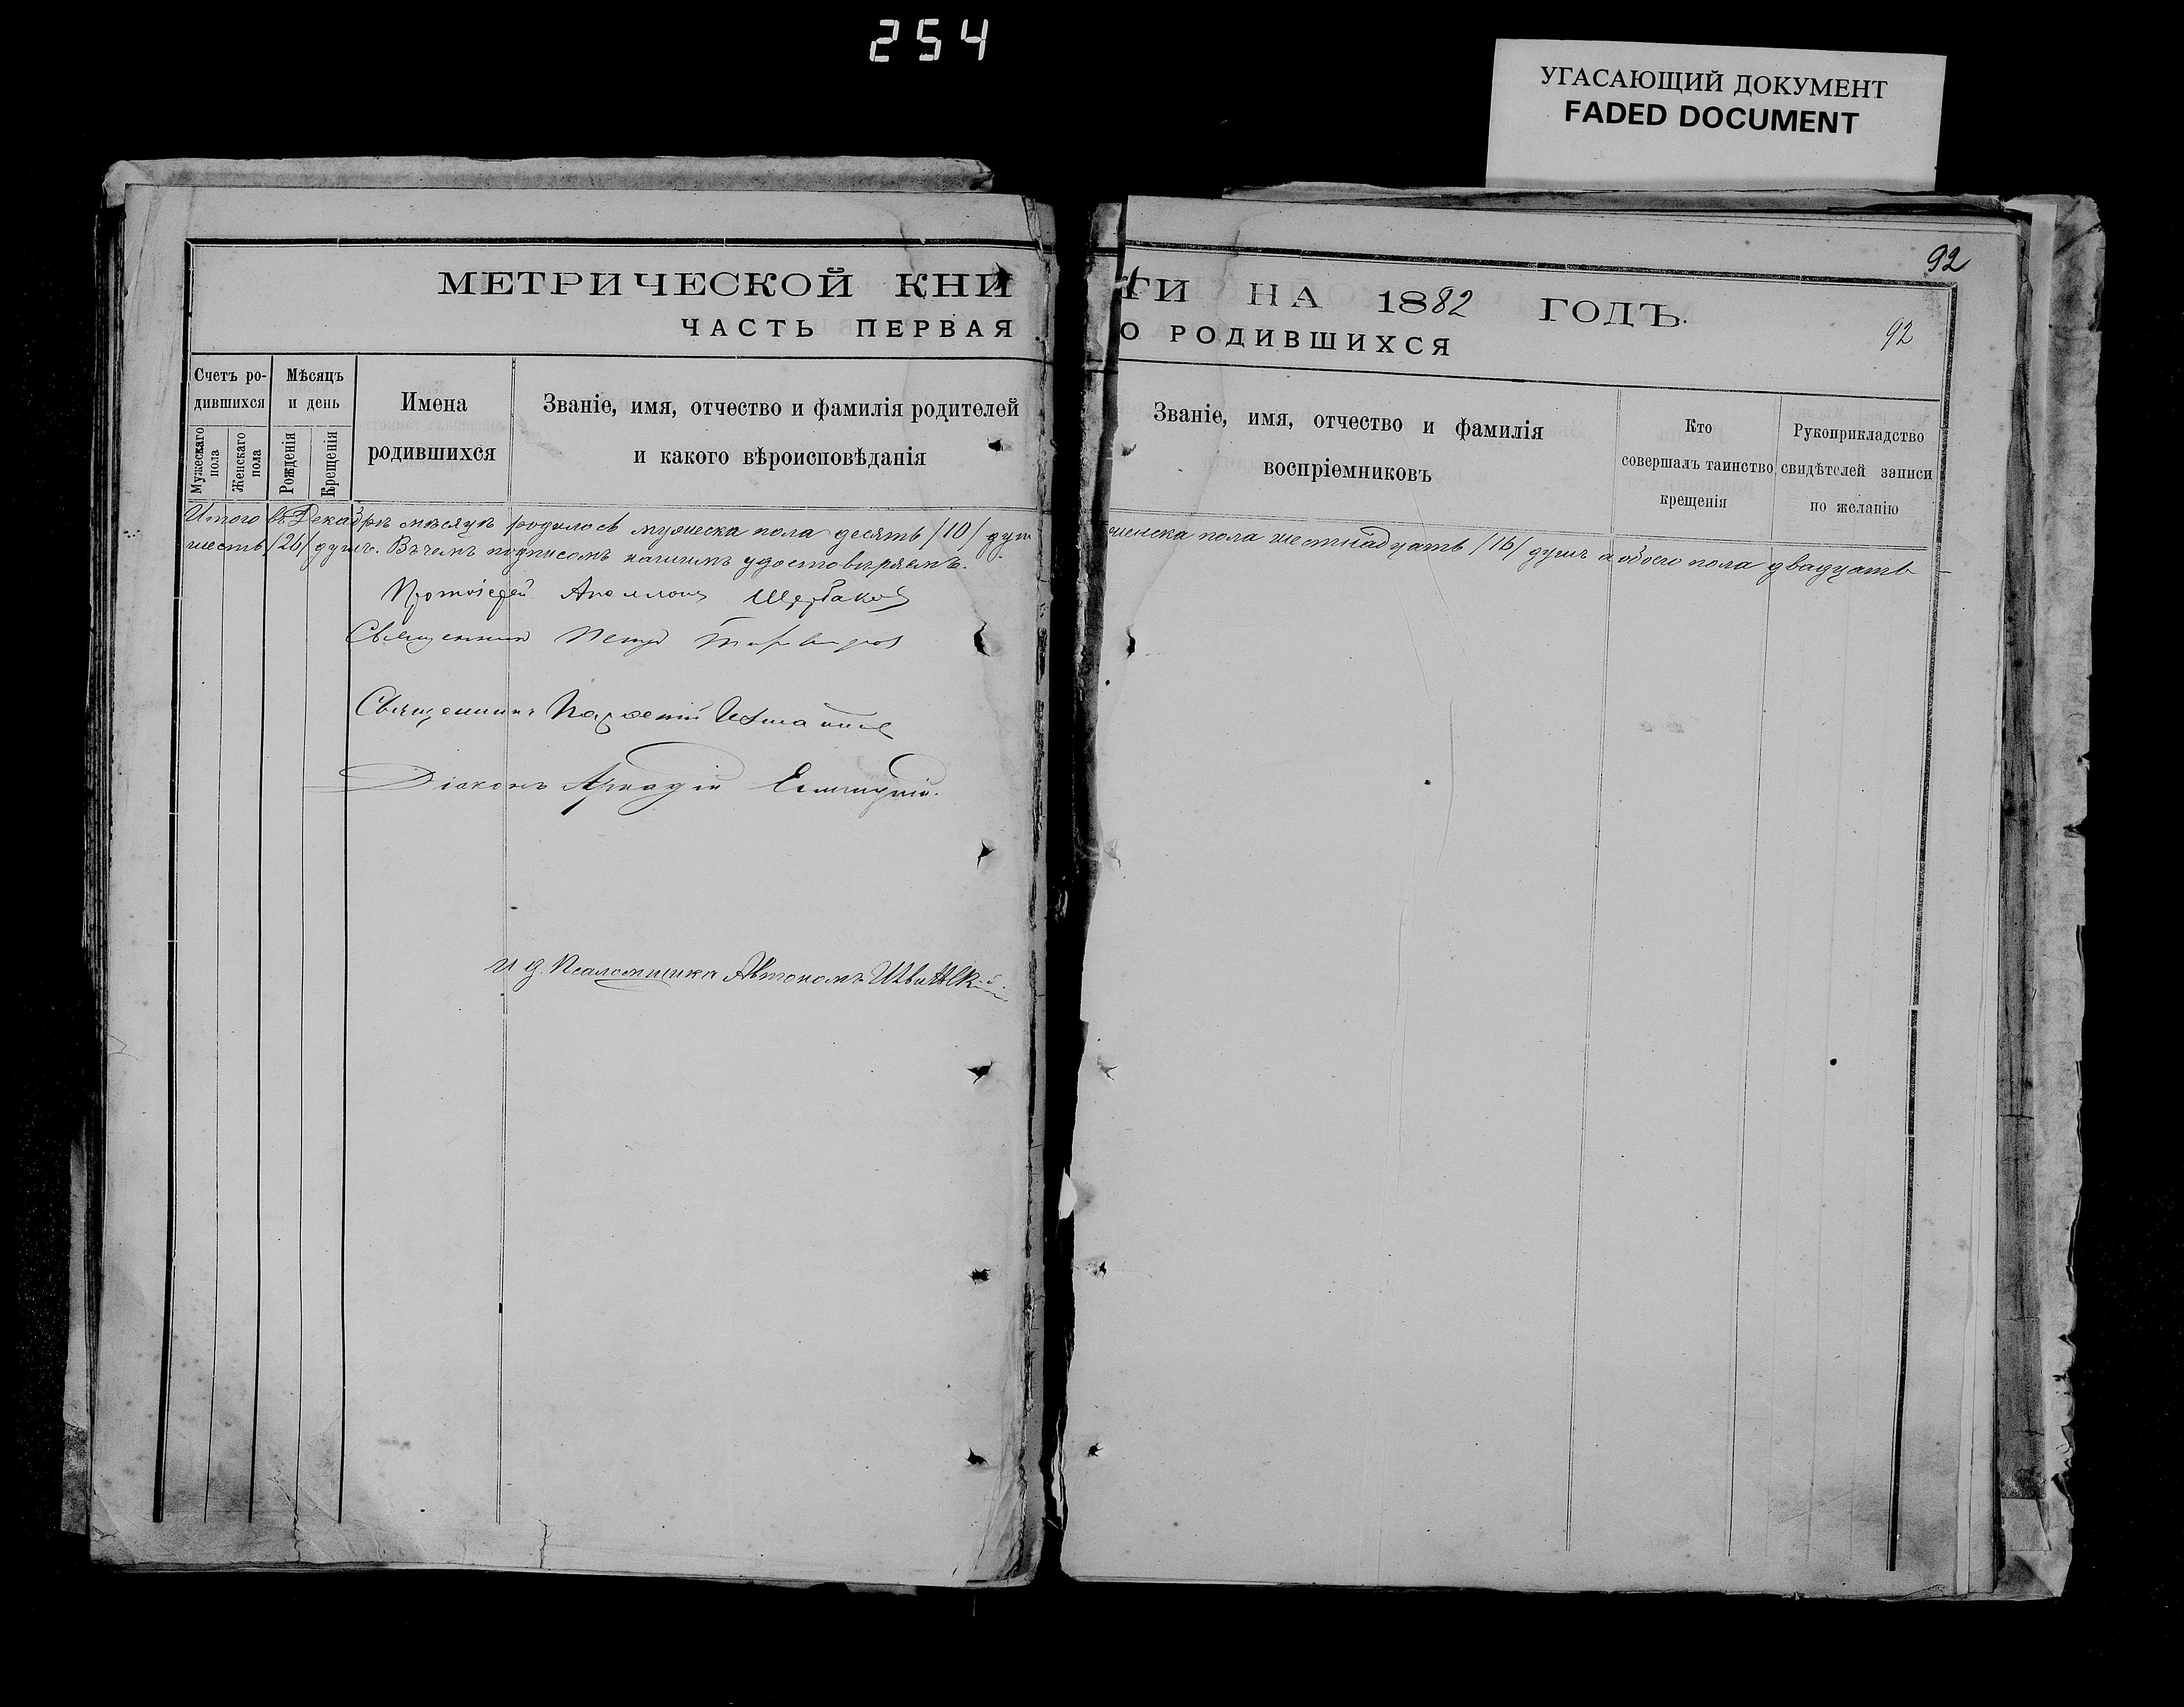 254
УГАСАЮЩИЙ ДОКУМЕНТ
FADED DOCUMENT
92
МЕТРИЧЕСКОЙ КНИГИ НА 1882 ГОДЪ.
ЧАСТЬ ПЕРВАЯ О РОДИВШИХСЯ
92
Счетъ родившихся
Мужескаго пола
Женскаго пола
Мѣсяцъ и день
Рожденія
Крещенія
Имена родившихся
Званіе, имя, отчество и фамилія родителей
и какого вѣроисповѣданія
Званіе, имя, отчество и фамилія
воспріемниковъ
Кто
совершалъ таинство
крещенія
Рукоприкладство
свидѣтелей записи
по желанію
Итого въ Декабрѣ мѣсяцѣ родилось мужеска пола десять /10/ душ женска пола шестнадцать /16/ душъ а обоего пола двадцать
шесть /26/ душъ. Въ чемъ подписомъ нашимъ удостовѣряемъ.
Протоіерей Аполлонъ Щербаковъ
Священникъ Петръ
Священникъ
Діаконъ Аркадій
И д. Псаломщика Автономъ